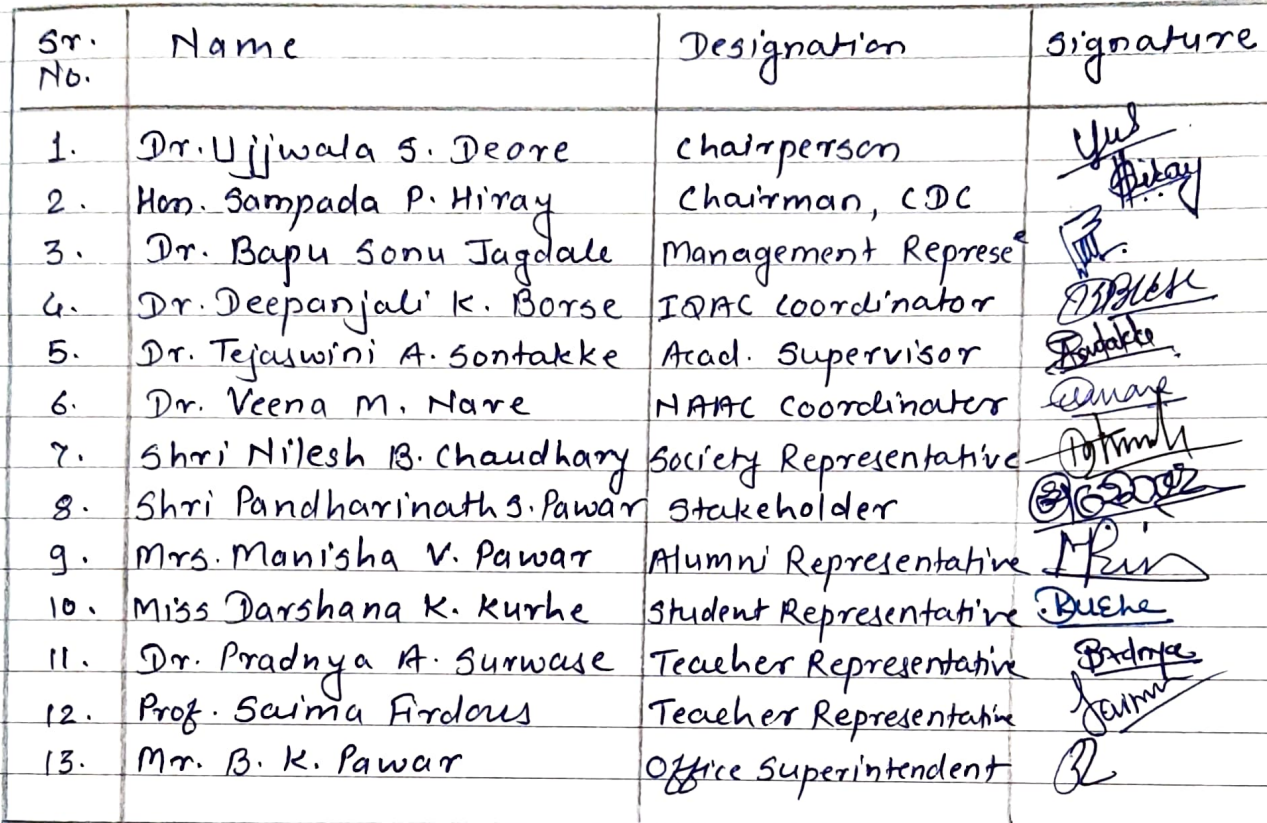 Sr. No. Name Designation Signature
1. Dr. Ujjwala S. Deore Chairperson
2. Hon. Sampada P. Hiray Chairman, CDC Hiray
3. Dr. Bapu Sonu Jagdale Management Represe
4. Dr. Deepanjali K. Borse IQAC Coordinator
5. Dr. Tejaswini A. Sontakke Acad. Supervisor
6. Dr. Veena M. Nare NAAC Coordinator
7. Shri Nilesh B. Chaudhary Society Representative
8. Shri Pandharinath S. Pawar Stakeholder
9. Mrs. Manisha V. Pawar Alumni Representative
10. Miss Darshana K. Kurhe Student Representative
11. Dr. Pradnya A. Surwase Teacher Representative
12. Prof. Saima Firdous Teacher Representative
13. Mr. B. K. Pawar Office Superintendent